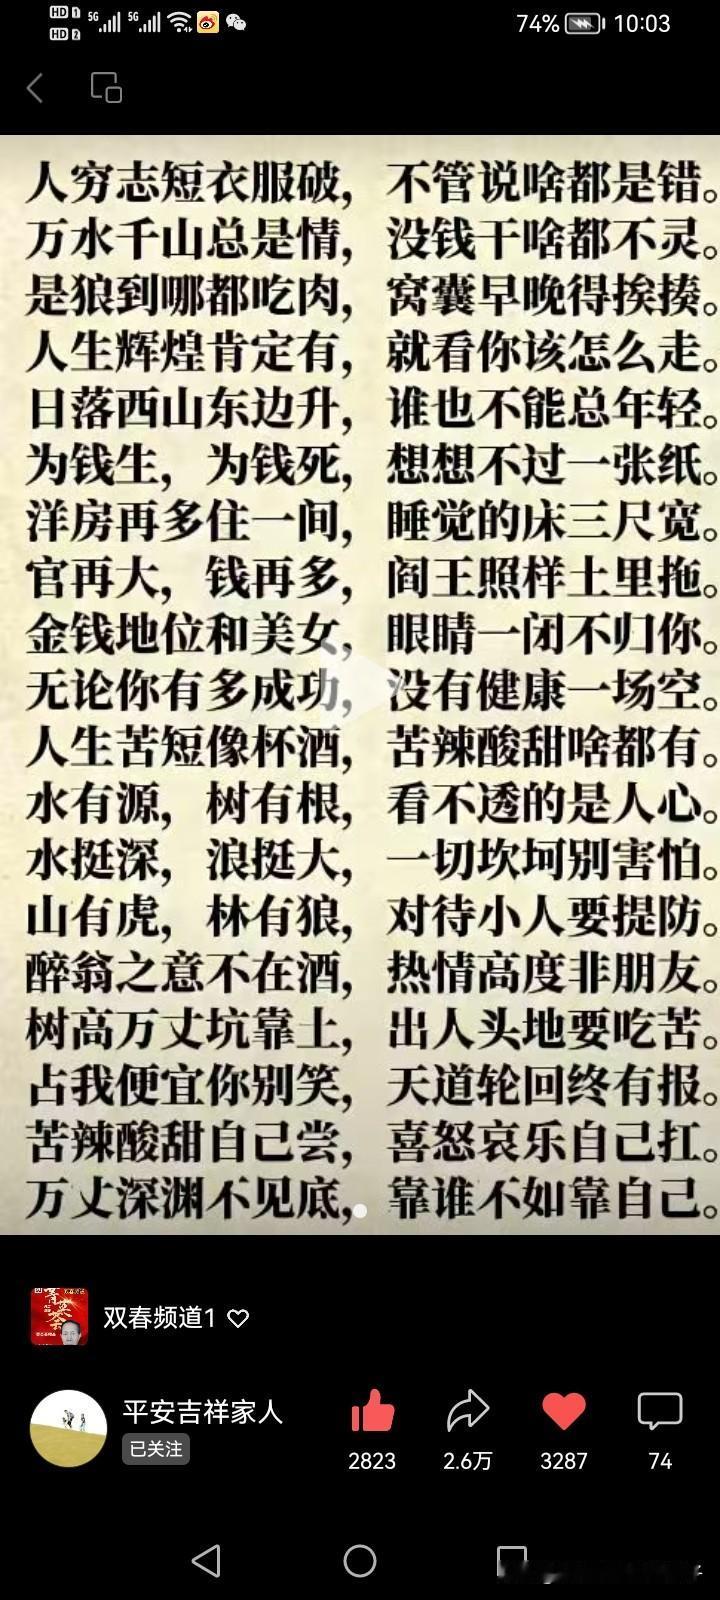 HD 1 5G 5G 74% 10:03
HD 2
人穷志短衣服破，不管说啥都是错。
万水千山总是情，没钱干啥都不灵。
是狼到哪都吃肉，窝囊早晚得挨揍。
人生辉煌肯定有，就看你该怎么走。
日落西山东边升，谁也不能总年轻。
为钱生，为钱死，想想不过一张纸。
洋房再多住一间，睡觉的床三尺宽。
官再大，钱再多，阎王照样土里拖。
金钱地位和美女，眼睛一闭不归你。
无论你有多成功，没有健康一场空。
人生苦短像杯酒，苦辣酸甜啥都有。
水有源，树有根，看不透的是人心。
水挺深，浪挺大，一切坎坷别害怕。
山有虎，林有狼，对待小人要提防。
醉翁之意不在酒，热情高度非朋友。
树高万丈坑靠土，出人头地要吃苦。
占我便宜你别笑，天道轮回终有报。
苦辣酸甜自己尝，喜怒哀乐自己扛。
万丈深渊不见底，靠谁不如靠自己。
双春频道1
平安吉祥家人
已关注
2823 2.6万 3287 74